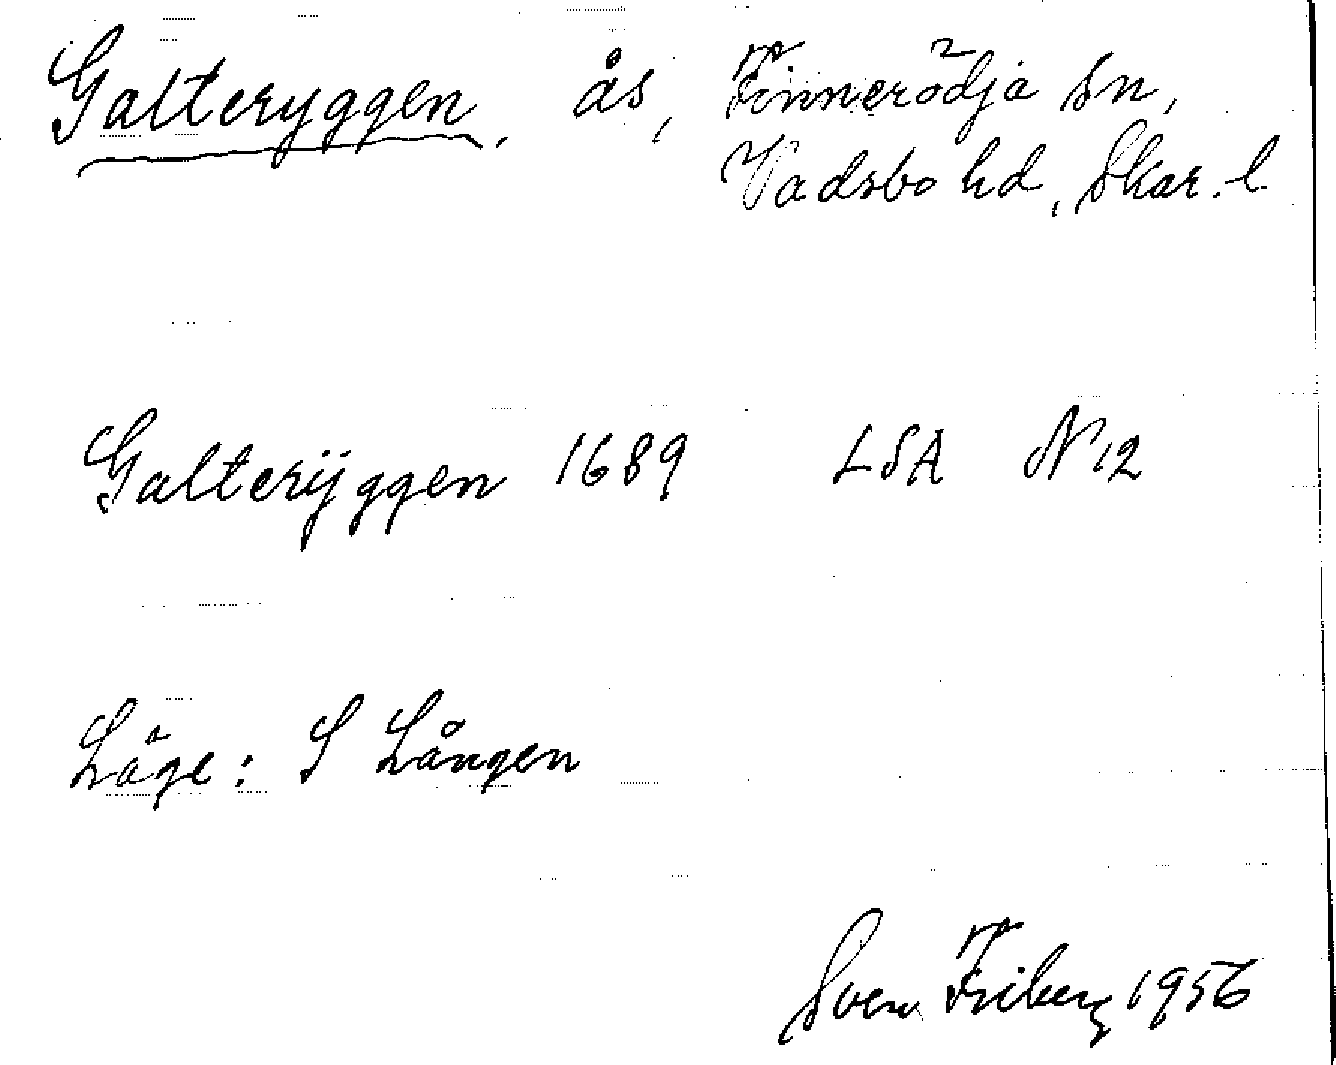 Galteryggen, ås, Finnerödja sn,
Vadsbo hd, Skar. l.
Galterÿggen 1689 LSA N 12
Läge: S Lången
Sven Friberg 1956